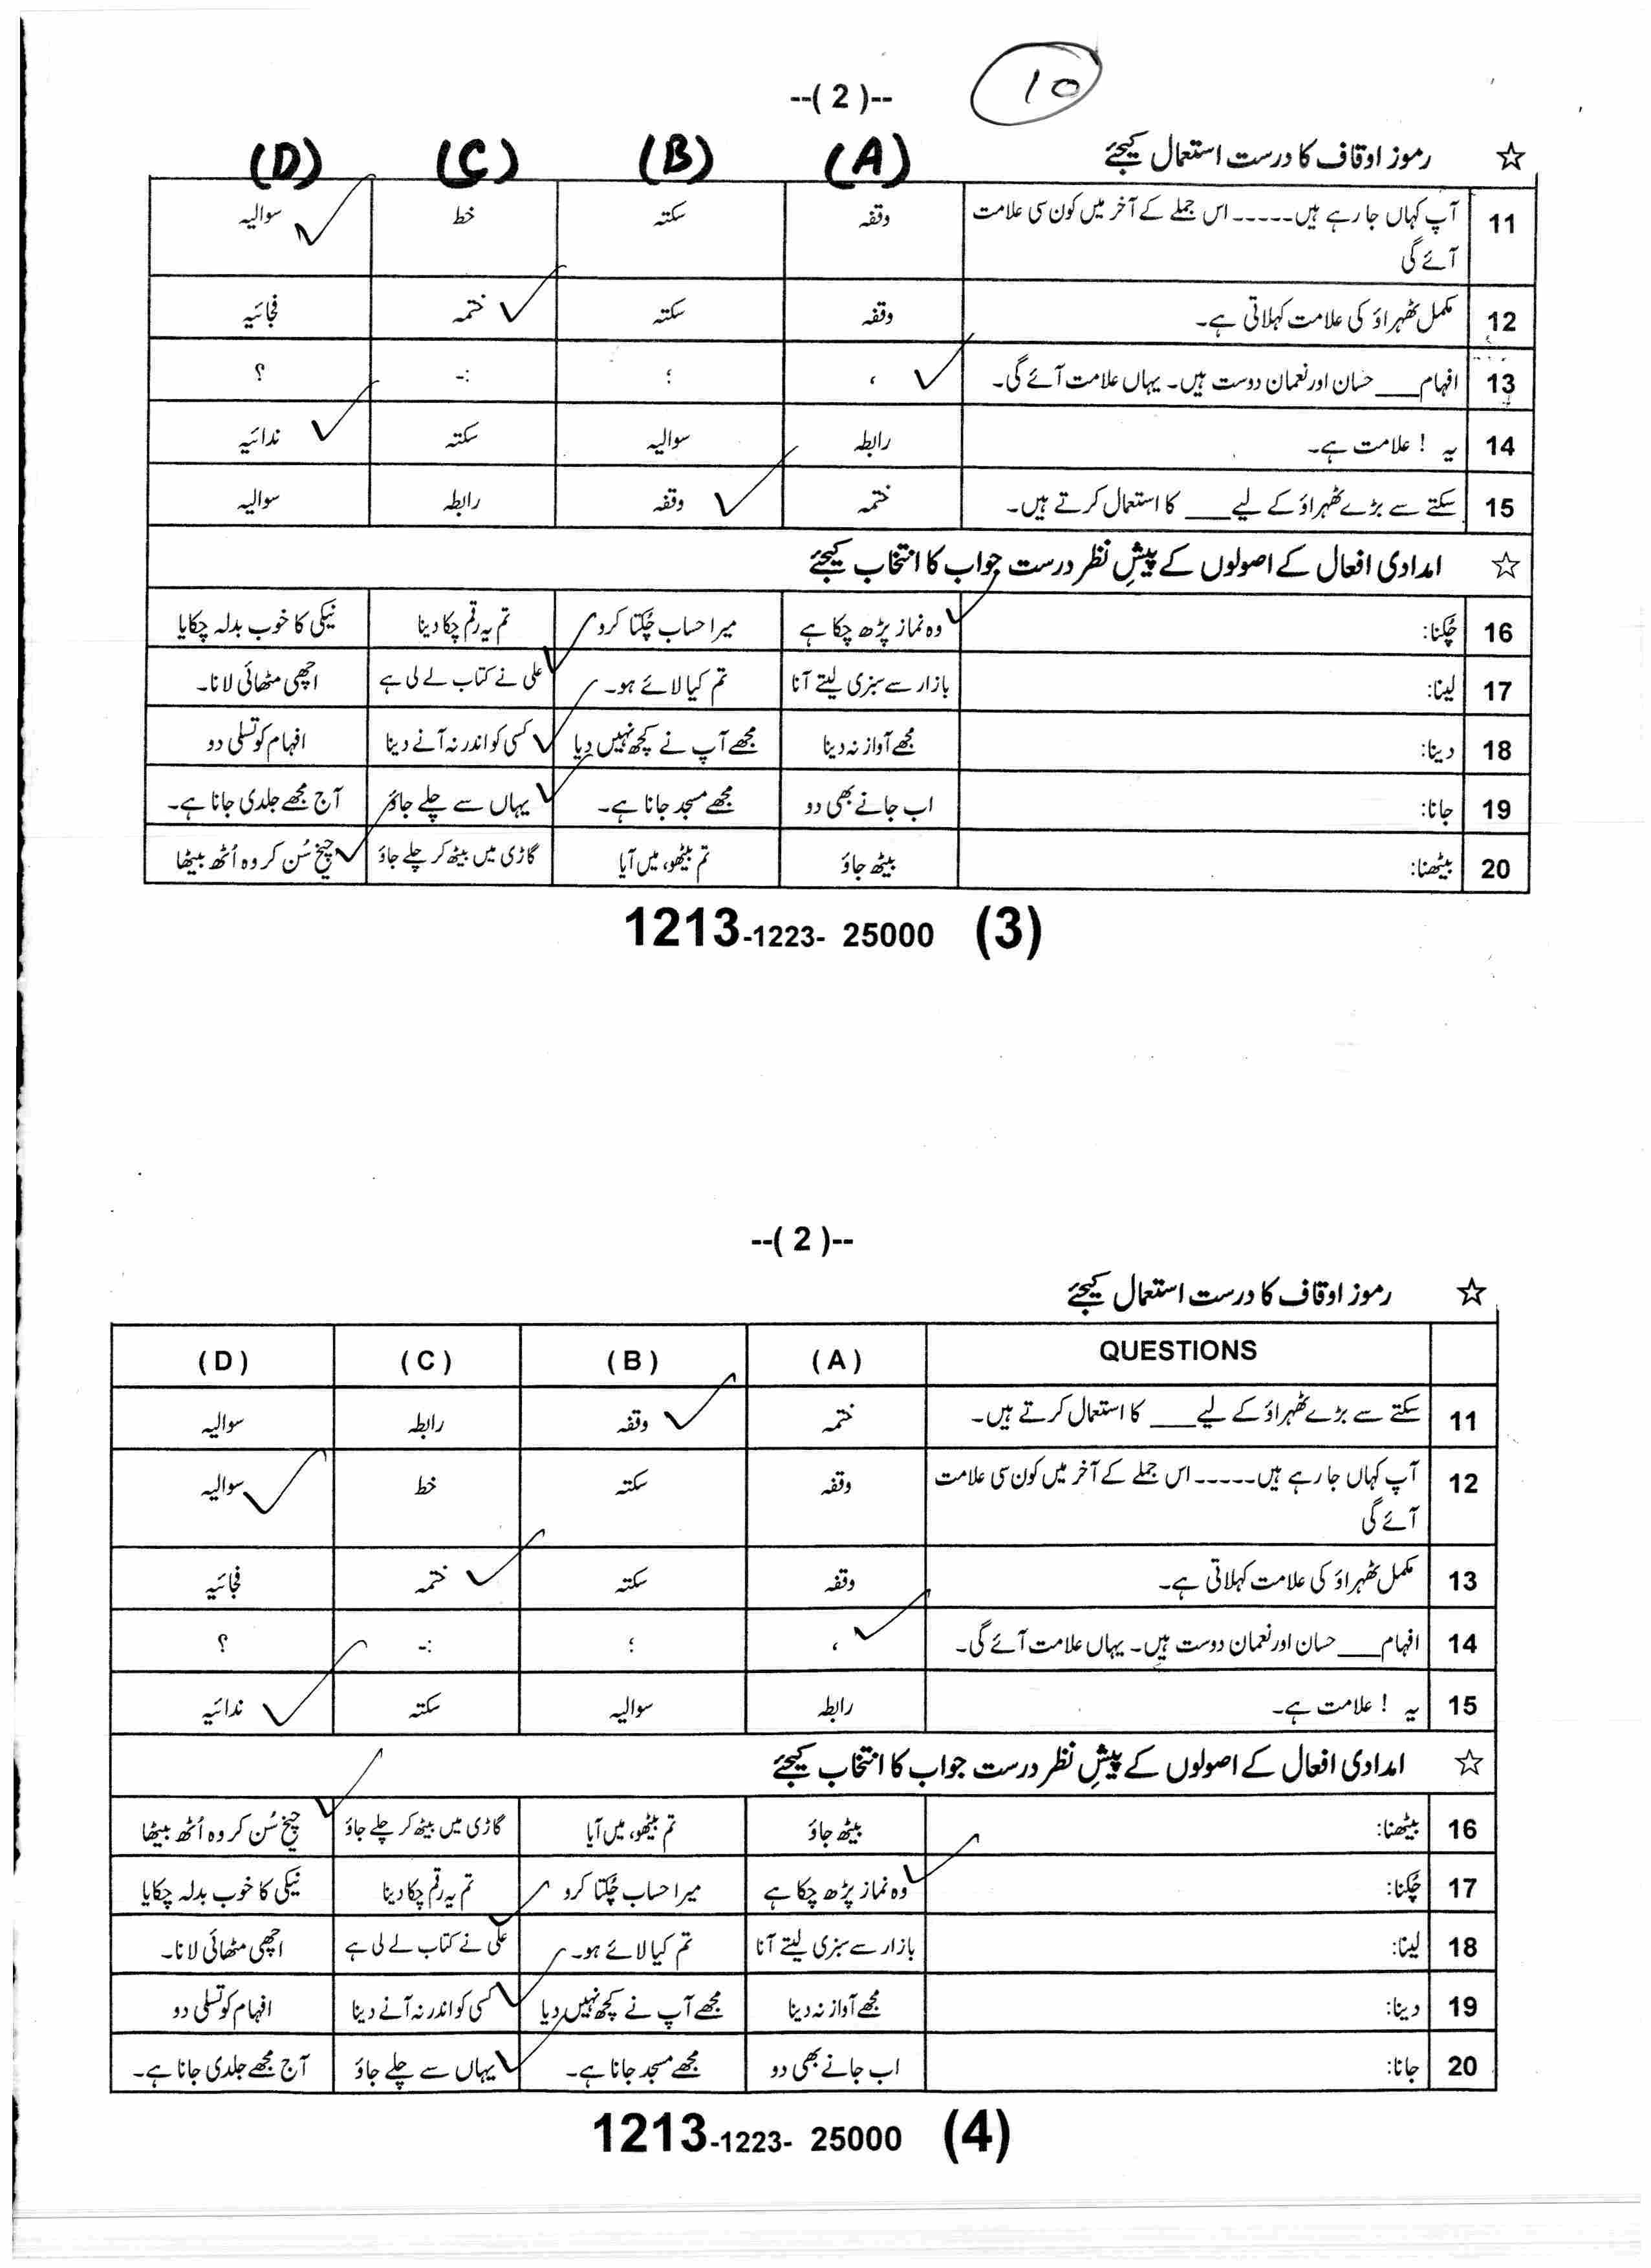 --( 2 )--
10
☆ رموز اوقاف کا درست استعمال کیجئے
(A) (B) (C) (D)
11 آپ کہاں جا رہے ہیں۔----- اس جملے کے آخر میں کون سی علامت آئے گی وقفہ سکتہ خط سوالیہ
12 مکمل ٹھہراؤ کی علامت کہلاتی ہے۔ وقفہ سکتہ ختمہ فجائیہ
13 افہام____ حسان اور نعمان دوست ہیں۔ یہاں علامت آئے گی۔ ، ؛ :- ؟
14 یہ ! علامت ہے۔ رابطہ سوالیہ سکتہ ندائیہ
15 سکتے سے بڑے ٹھہراؤ کے لیے____ کا استعمال کرتے ہیں۔ ختمہ وقفہ رابطہ سوالیہ
☆ امدادی افعال کے اصولوں کے پیشِ نظر درست جواب کا انتخاب کیجئے
16 چُکنا: وہ نماز پڑھ چکا ہے میرا حساب چُکتا کرو تم یہ رقم چکا دینا نیکی کا خوب بدلہ چکایا
17 لینا: بازار سے سبزی لیتے آنا تم کیا لائے ہو۔ علی نے کتاب لے لی ہے اچھی مٹھائی لانا۔
18 دینا: مجھے آواز نہ دینا مجھے آپ نے کچھ نہیں دیا کسی کو اندر نہ آنے دینا افہام کو تسلی دو
19 جانا: اب جانے بھی دو مجھے مسجد جانا ہے۔ یہاں سے چلے جاؤ آج مجھے جلدی جانا ہے۔
20 بیٹھنا: بیٹھ جاؤ تم بیٹھو، میں آیا گاڑی میں بیٹھ کر چلے جاؤ چیخ سُن کر وہ اُٹھ بیٹھا
1213-1223- 25000 (3)
--( 2 )--
☆ رموز اوقاف کا درست استعمال کیجئے
QUESTIONS (A) (B) (C) (D)
11 سکتے سے بڑے ٹھہراؤ کے لیے____ کا استعمال کرتے ہیں۔ ختمہ وقفہ رابطہ سوالیہ
12 آپ کہاں جا رہے ہیں۔----- اس جملے کے آخر میں کون سی علامت آئے گی وقفہ سکتہ خط سوالیہ
13 مکمل ٹھہراؤ کی علامت کہلاتی ہے۔ وقفہ سکتہ ختمہ فجائیہ
14 افہام____ حسان اور نعمان دوست ہیں۔ یہاں علامت آئے گی۔ ، ؛ :- ؟
15 یہ ! علامت ہے۔ رابطہ سوالیہ سکتہ ندائیہ
☆ امدادی افعال کے اصولوں کے پیشِ نظر درست جواب کا انتخاب کیجئے
16 بیٹھنا: بیٹھ جاؤ تم بیٹھو، میں آیا گاڑی میں بیٹھ کر چلے جاؤ چیخ سُن کر وہ اُٹھ بیٹھا
17 چُکنا: وہ نماز پڑھ چکا ہے میرا حساب چُکتا کرو تم یہ رقم چکا دینا نیکی کا خوب بدلہ چکایا
18 لینا: بازار سے سبزی لیتے آنا تم کیا لائے ہو۔ علی نے کتاب لے لی ہے اچھی مٹھائی لانا۔
19 دینا: مجھے آواز نہ دینا مجھے آپ نے کچھ نہیں دیا کسی کو اندر نہ آنے دینا افہام کو تسلی دو
20 جانا: اب جانے بھی دو مجھے مسجد جانا ہے۔ یہاں سے چلے جاؤ آج مجھے جلدی جانا ہے۔
1213-1223- 25000 (4)